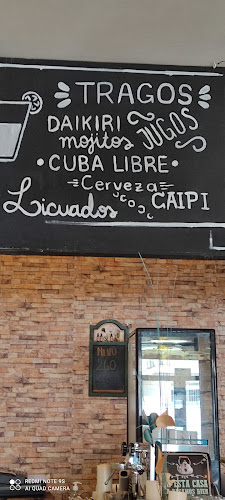 TRAGOS
DAIKIRI
mojitos JUGOS
• CUBA LIBRE •
Cerveza
Licuados JUGOS CAIPI
MENU
260
ESTA CASA
REDMI NOTE 9S
AI QUAD CAMERA